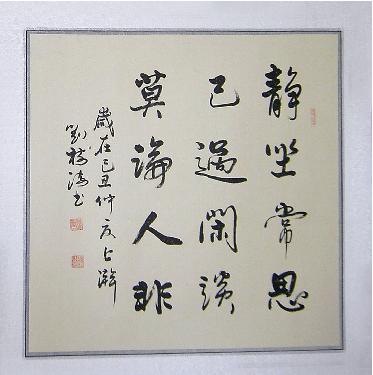 静坐常思
己過閑談
莫論人非
歲在己丑仲夏上澣
劉